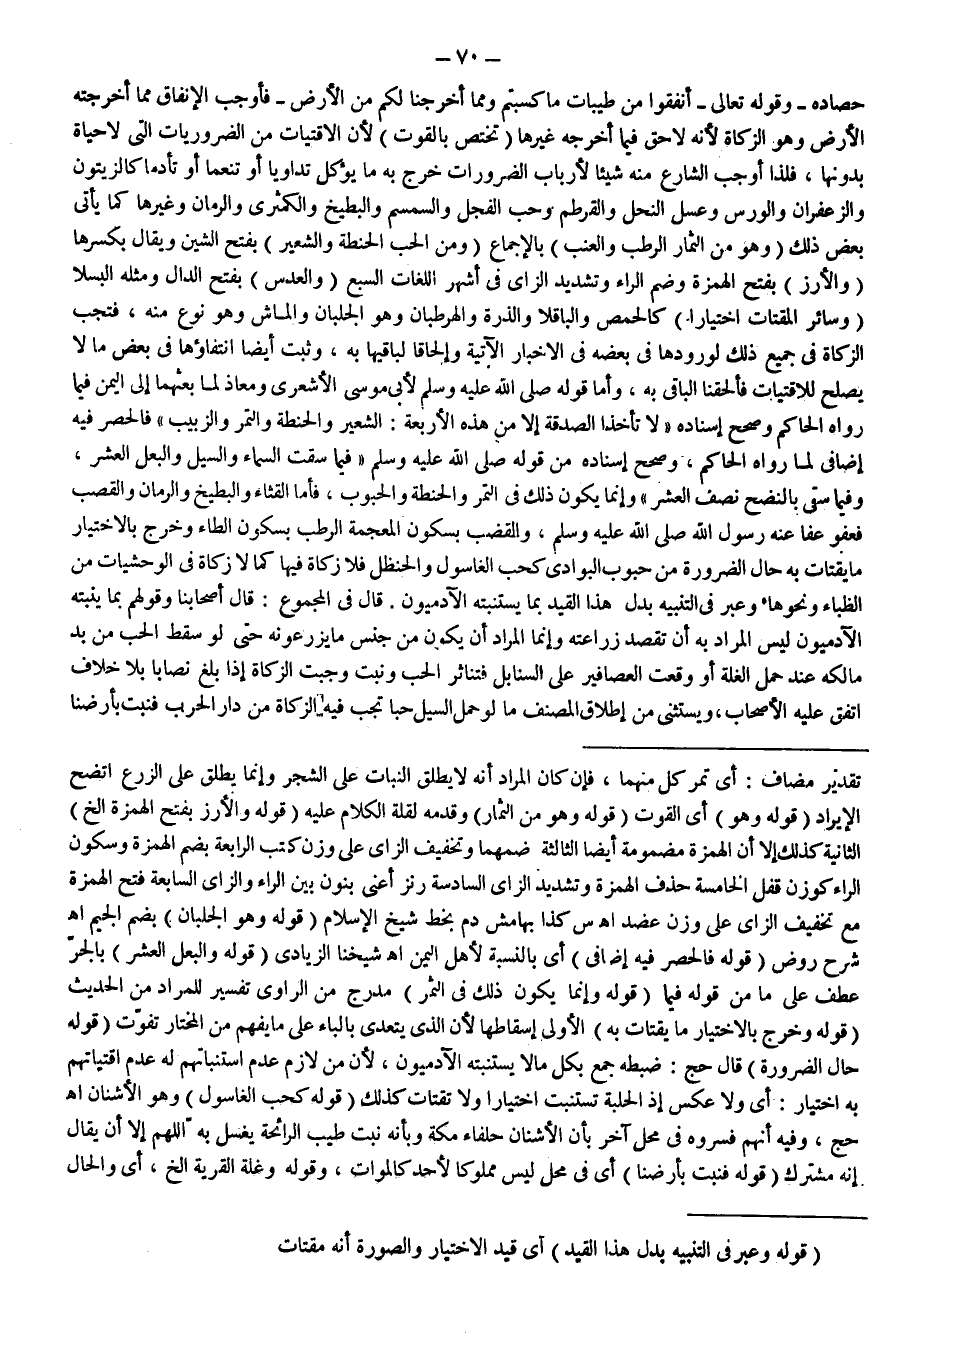 – ٧٠ –
حصاده ـ وقوله تعالى ـ أنفقوا من طيبات ماكسبتم ومما أخرجنا لكم من الأرض ـ فأوجب الإنفاق مما أخرجته
الأرض وهو الزكاة لأنه لاحق فيما أخرجه غيرها ( تختص بالقوت ) لأن الاقتيات من الضروريات التى لاحياة
بدونها ، فلذا أوجب الشارع منه شيئا لأرباب الضرورات خرج به ما يؤكل تداويا أو تنعما أو تأدما كالزيتون
والزعفران والورس وعسل النحل والقرطم وحب الفجل والسمسم والبطيخ والكمثرى والرمان وغيرها كما يأتى
بعض ذلك ( وهو من الثمار الرطب والعنب ) بالإجماع ( ومن الحب الحنطة والشعير ) بفتح الشين ويقال بكسرها
( والأرز ) بفتح الهمزة وضم الراء وتشديد الزاى فى أشهر اللغات السبع ( والعدس ) بفتح الدال ومثله البسلا
( وسائر المقتات اختيارا ) كالحمص والباقلا والذرة والهرطبان وهو الجلبان والماش وهو نوع منه ، فتجب
الزكاة فى جميع ذلك لورودها فى بعضه فى الاخبار الآتية وإلحاقا لباقيها به ، وثبت أيضا انتفاؤها فى بعض ما لا
يصلح للاقتيات فألحقنا الباقى به ، وأما قوله صلى الله عليه وسلم لأبى موسى الأشعرى ومعاذ لما بعثهما إلى اليمن فيما
رواه الحاكم وصحح إسناده « لا تأخذا الصدقة إلا من هذه الأربعة : الشعير والحنطة والتمر والزبيب » فالحصر فيه
إضافى لما رواه الحاكم ، وصحح إسناده من قوله صلى الله عليه وسلم « فيما سقت السماء والسيل والبعل العشر ،
وفيما سقى بالنضح نصف العشر » وإنما يكون ذلك فى التمر والحنطة والحبوب ، فأما القثاء والبطيخ والرمان والقصب
فعفو عفا عنه رسول الله صلى الله عليه وسلم ، والقضب بسكون المعجمة الرطب بسكون الطاء وخرج بالاختيار
مايقتات به حال الضرورة من حبوب البوادى كحب الغاسول والحنظل فلا زكاة فيها كما لا زكاة فى الوحشيات من
الظباء ونحوها وعبر فى التنبيه بدل هذا القيد بما يستنبته الآدميون . قال فى المجموع : قال أصحابنا وقولهم بما ينبته
الآدميون ليس المراد به أن تقصد زراعته وإنما المراد أن يكون من جنس مايزرعونه حتى لو سقط الحب من يد
مالكه عند حمل الغلة أو وقعت العصافير على السنابل فتناثر الحب ونبت وجبت الزكاة إذا بلغ نصابا بلا خلاف
اتفق عليه الأصحاب ، ويستثنى من إطلاق المصنف ما لو حمل السيل حبا تجب فيه الزكاة من دار الحرب فنبت بأرضنا
تقدير مضاف : أى تمر كل منهما ، فإن كان المراد أنه لايطلق النبات على الشجر وإنما يطلق على الزرع اتضح
الإيراد ( قوله وهو ) أى القوت ( قوله وهو من الثمار) وقدمه لقلة الكلام عليه ( قوله والأرز بفتح الهمزة الخ )
الثانية كذلك إلا أن الهمزة مضمومة أيضا الثالثة ضمهما وتخفيف الزاى على وزن كتب الرابعة بضم الهمزة وسكون
الراء كوزن قفل الخامسة حذف الهمزة وتشديد الزاى السادسة رنز أعنى بنون بين الراء والزاى السابعة فتح الهمزة
مع تخفيف الزاى على وزن عضد اه س كذا بهامش دم بخط شيخ الإسلام ( قوله وهو الجلبان ) بضم الجيم اه
شرح روض ( قوله فالحصر فيه إضافى ) أى بالنسبة لأهل اليمن اه شيخنا الزيادى ( قوله والبعل العشر ) بالجرّ
عطف على ما من قوله فيما ( قوله وإنما يكون ذلك فى الثمر ) مدرج من الراوى تفسير للمراد من الحديث
( قوله وخرج بالاختيار ما يقتات به ) الأولى إسقاطها لأن الذى يتعدى بالباء على مايفهم من المختار تفوّت ( قوله
حال الضرورة ) قال حج : ضبطه جمع بكل مالا يستنبته الآدميون ، لأن من لازم عدم استنباتهم له عدم اقتياتهم
به اختيار : أى ولا عكس إذ الحلبة تستنبت اختيارا ولا تقتات كذلك ( قوله كحب الغاسول ) وهو الأشنان اه
حج ، وفيه أنهم فسروه فى محل آخر بأن الأشنان حلفاء مكة وبأنه نبت طيب الرائحة يغسل به اللهم إلا أن يقال
إنه مشترك ( قوله فنبت بأرضنا ) أى فى محل ليس مملوكا لأحد كالموات ، وقوله وغلة القرية الخ ، أى والحال
( قوله وعبر فى التنبيه بدل هذا القيد ) أى قيد الاختيار والصورة أنه مقتات